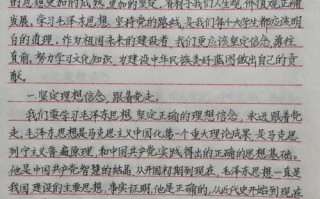 的思想更加的成熟，更加的坚定，有利于我们人生观，价值观正确
发展，学习毛泽东思想，坚持党的路线，是我们每个大学生都应该明
白的道理。作为祖国未来的建设者，我们更应该坚定信念，勇往
直前，努力学习文化知识，为建设中华民族美好蓝图做出自己的贡
献。
一.坚定理想信念，跟着党走。
我们要学习毛泽东思想，坚定正确的理想信念，永远跟着党
走，毛泽东思想是马克思主义中国化第一个重大理论成果，是马克思
列宁主义普遍原理，和中国共产党实践得出的正确的思想基础。
他是中国共产党智慧的结晶，从开国初期到现在，毛泽东思想一直是
我国建设的主要思想，事实证明，他是正确的，从近代史开始到现在